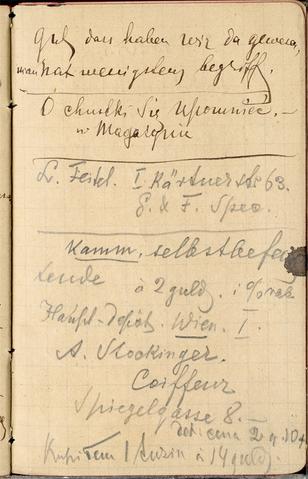 Gut, dass haben wir da gewesen,
man hat wenigstens begriff.
O chustki się upomnieć. –
w Magazynie
L. Feitel. I Kärtnerstr 63.
& F. Spec.
Kamm, selbstbefeuch
tende à 2 guld. i %
Haupt-Depôt. Wien. I.
A. Stockinger.
Coiffeur
Spiegelgasse 8. –
cena 2
Kupiłem 1 tuzin à 14 guld.